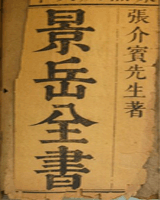 張介賓先生著
景岳全書